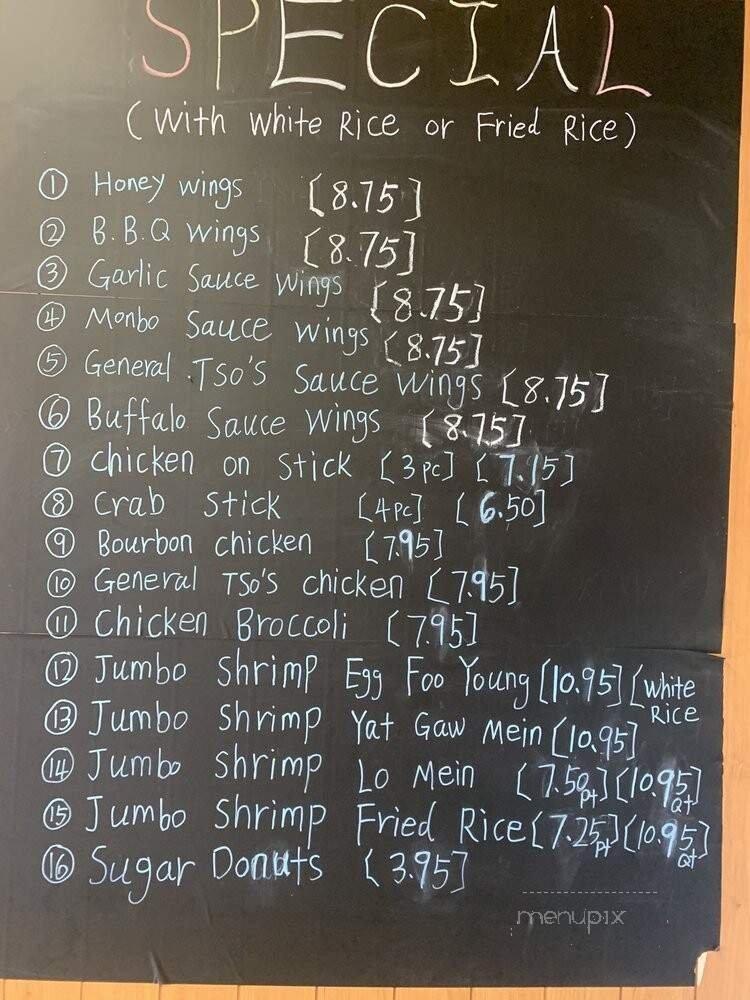 SPECIAL
(With White Rice or Fried Rice)
① Honey wings [8.75]
② B.B.Q wings [8.75]
③ Garlic Sauce wings [8.75]
④ Monbo Sauce wings [8.75]
⑤ General Tso's Sauce wings [8.75]
⑥ Buffalo Sauce wings [8.75]
⑦ Chicken on Stick [3pc] [7.15]
⑧ Crab Stick [4pc] [6.50]
⑨ Bourbon chicken [7.95]
⑩ General Tso's chicken [7.95]
⑪ Chicken Broccoli [7.95]
⑫ Jumbo Shrimp Egg Foo Young [10.95] [White Rice
⑬ Jumbo Shrimp Yat Gaw Mein [10.95]
⑭ Jumbo Shrimp Lo Mein [7.50 pt] [10.95 Qt]
⑮ Jumbo Shrimp Fried Rice [7.25 pt] [10.95 Qt]
⑯ Sugar Donuts [3.95]
menupix